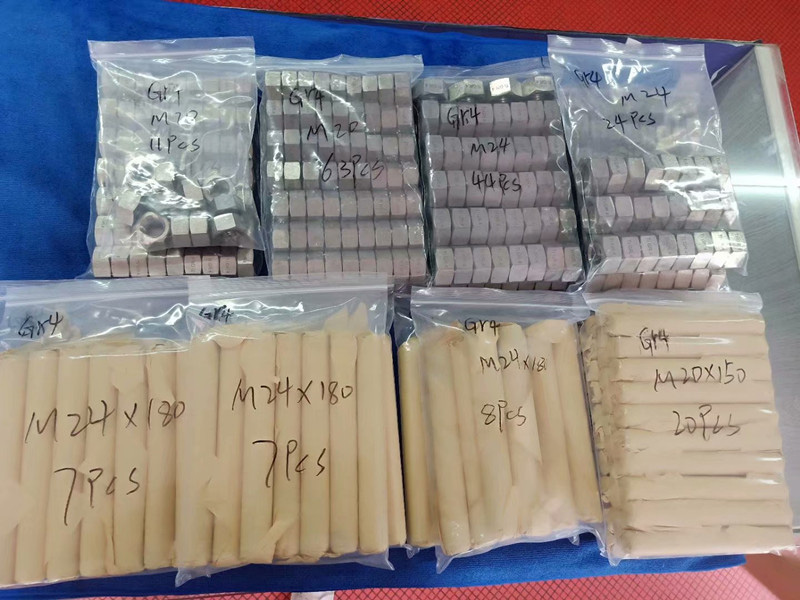 Gr4
11Pcs
Gr4
M20
63Pcs
Gr4
M24
44Pcs
Gr4
M24
24Pcs
Gr4
M24X180
7Pcs
Gr4
M24X180
7Pcs
Gr4
M24X180
8Pcs
Gr4
M20X150
20Pcs